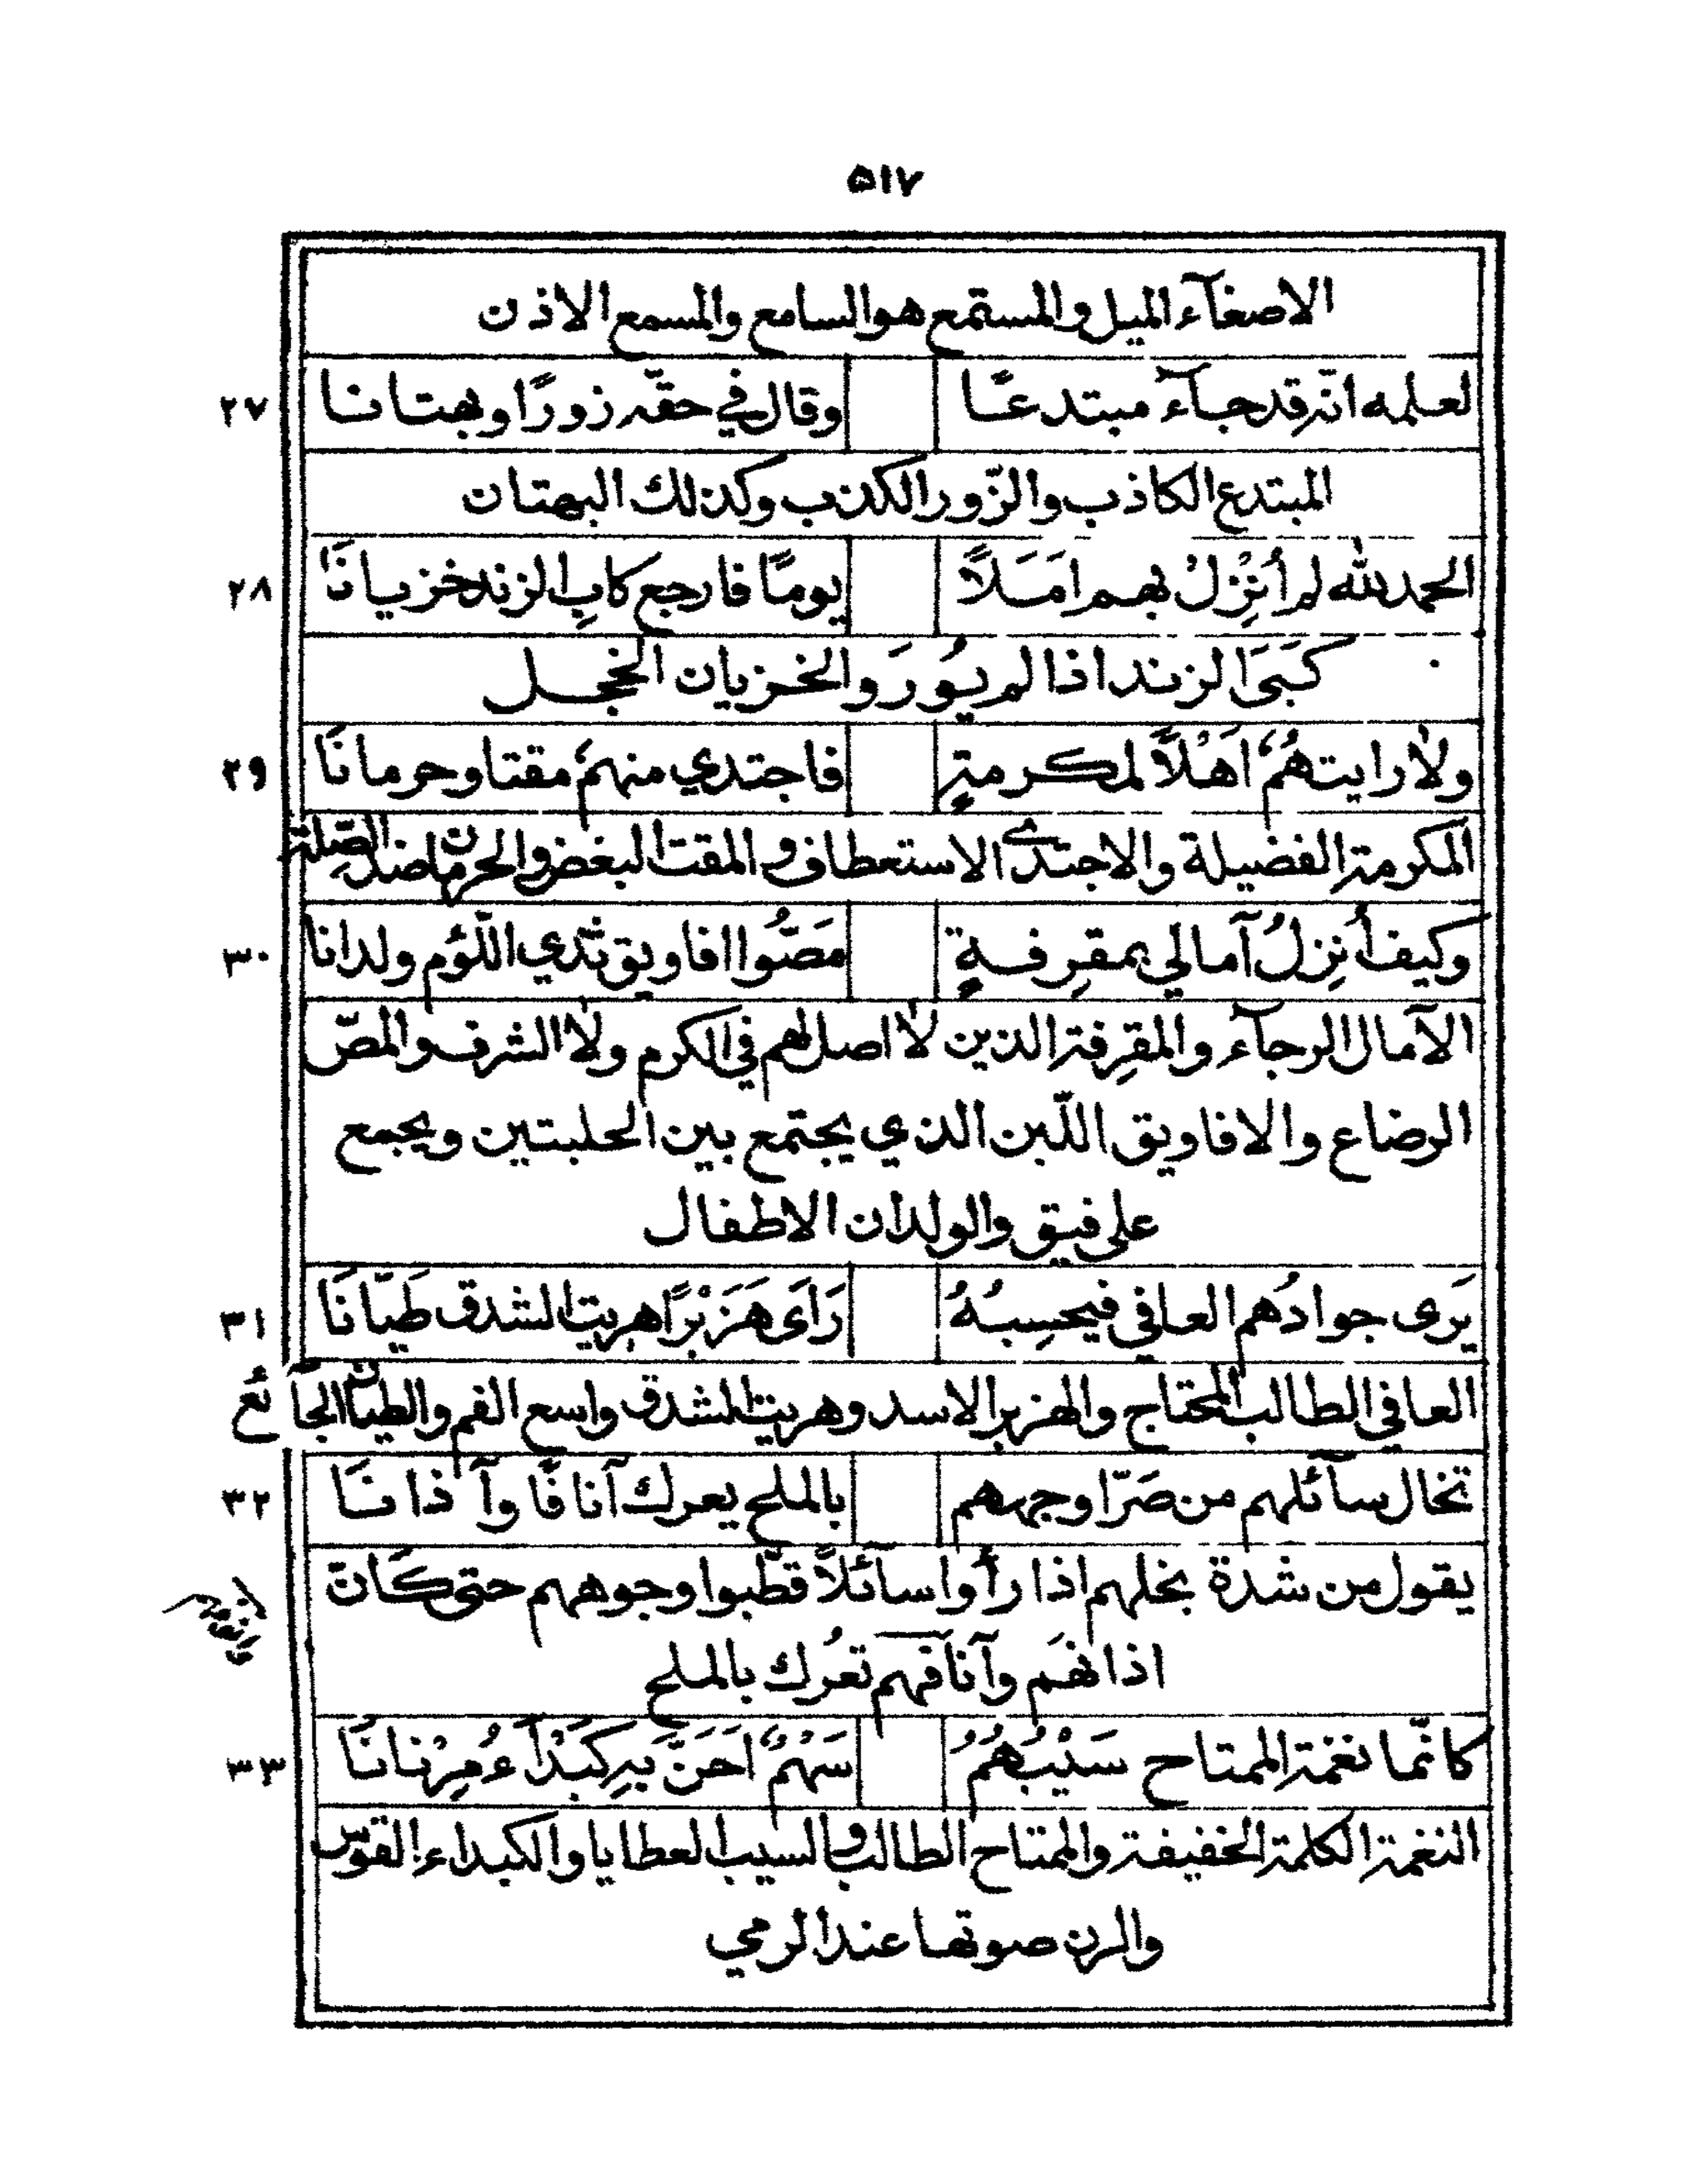 ٥١٧
الاصغآء الميل والمستمع هو السامع والمسمع الاذن
لعلمه انّه قد جآء مبتدعًا وقال في حقّه زورًا وبهتانا ٢٧
المبتدع الكاذب والزّور الكذب وكذلك البهتان
الحمد لله لم أُنْزِلْ بهم امَلًا يومًا فارجع كابِ الزند خزيانَا ٢٨
كَبَىَ الزند اذا لم يُورَ والخزيان الخجل
ولا رايتهُمُ اَهْلًا لمكرمةٍ فاجتدي منهمُ مقتا وحرمانَا ٢٩
المكرمة الفضيلة والاجتدى الاستعطاف والمقت البغض والحرمان ضد الصِّلة
وكيف أُنزِلُ آمالي بمقرِفةٍ مَصُّوا افاويق ثدي اللّؤم ولدانا ٣٠
الآمال الرجآء والمقرِفة الذين لا اصل لهم في الكرم ولا الشرف والمصّ
الرضاع والافاويق اللّبن الذي يجتمع بين الحلبتين ويجمع
على فيق والولدان الاطفال
يَرى جوادُهم العافي فيحسِبُهُ رَاَى هَزَبْرًا هريت الشدق طَيّانَا ٣١
العافي الطالب المحتاج والهزبر الاسد وهريت الشدق واسع الفم والطيان الجآئع
تخال سآئلهم من صَرّا وجههم بالملح يعرك آنافًا وآذانَا ٣٢
يقول من شدة بخلهم اذا رأوا سآئلًا قطّبوا وجوههم حتى كَانّ
اذانهَم وآنافَهم تعُرك بالملح
كانّما نغمة الممتاح سَيْبُهُمُ سَهْمٌ اَحَنَّ بهِ كَبَدْآءُ مِرْنانَا ٣٣
النغمة الكلمة الخفيفة والممتاح الطالب والسيب العطايا والكبداء القوس
والرن صوتها عند الرمي